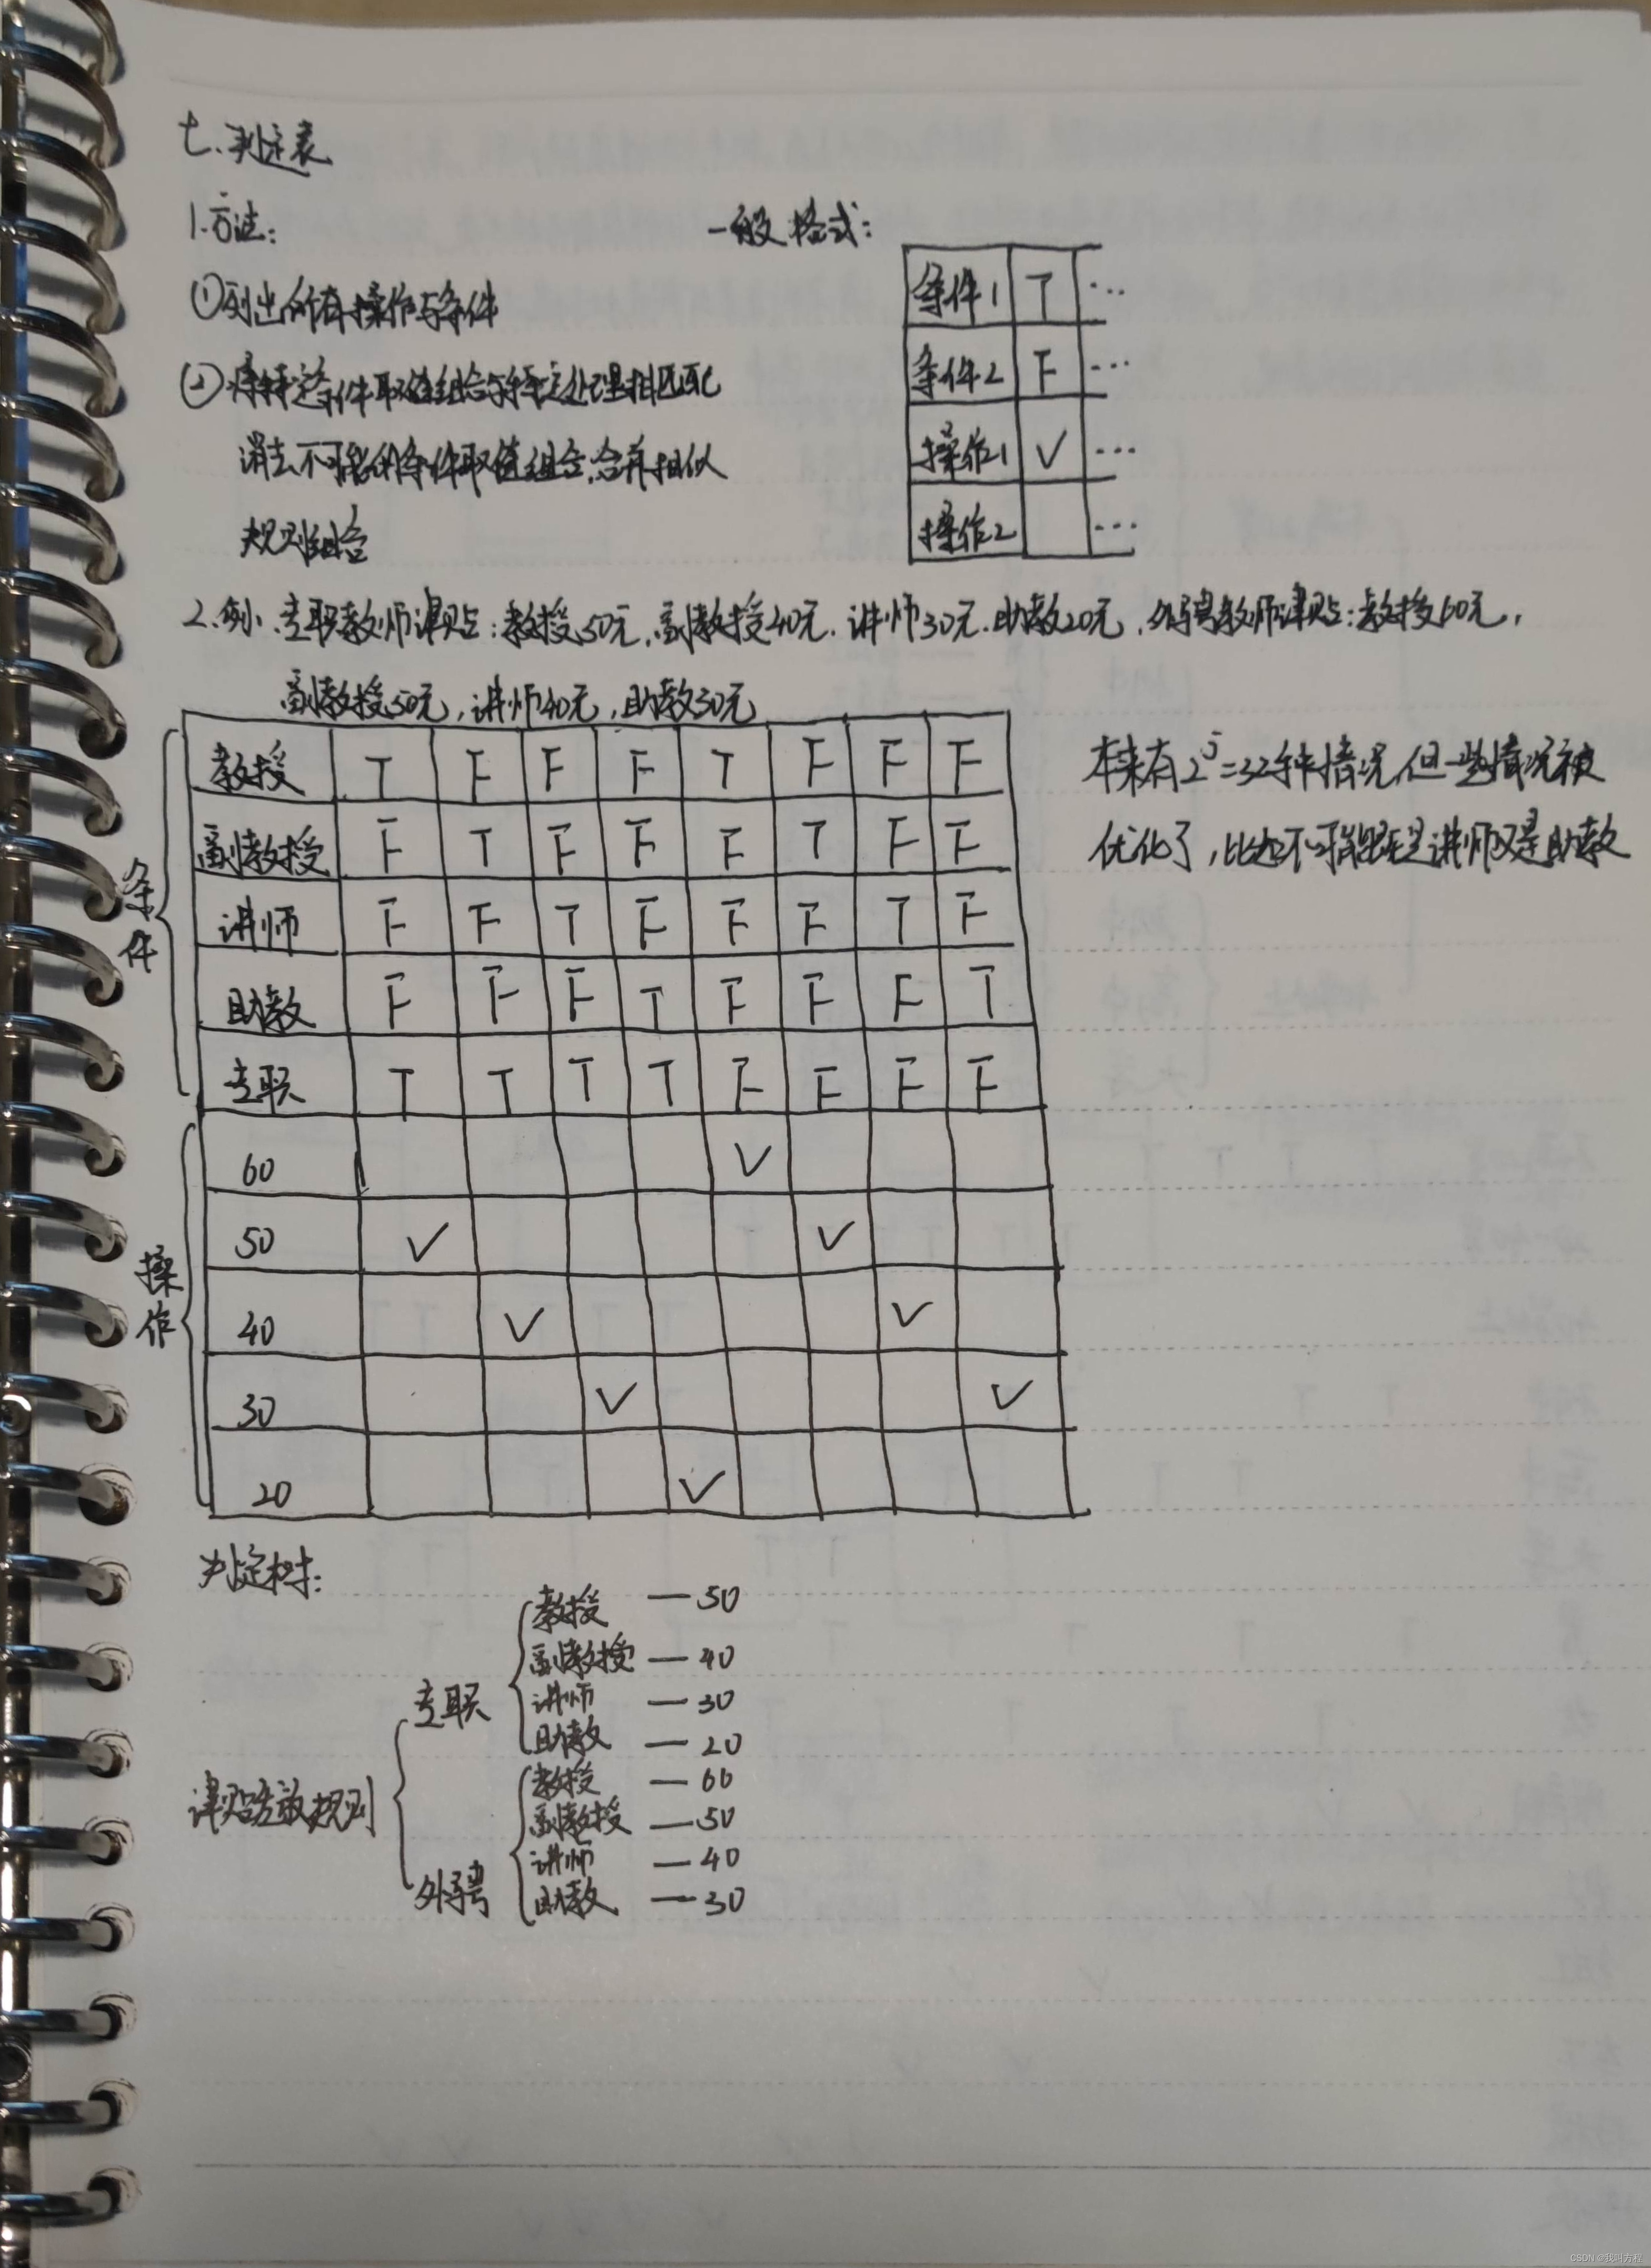 七.判定表
1.方法:
一般格式:
①列出所有操作与条件
②将特定条件取值组合与特定处理相匹配
消去不可能的条件取值组合,合并相似
规则组合
条件1 T ···
条件2 F ···
操作1 ✓ ···
操作2 ···
2.例:专职教师津贴:教授50元,副教授40元.讲师30元.助教20元,外聘教师津贴:教授60元,
副教授50元,讲师40元,助教30元
条件
教授 T F F F T F F F
副教授 F T F F F T F F
讲师 F F T F F F T F
助教 F F F T F F F T
专职 T T T T F F F F
操作
60 ✓
50 ✓ ✓
40 ✓ ✓
30 ✓ ✓
20 ✓
本来有2⁵=32种情况,但一些情况被
优化了,比如不可能既是讲师又是助教
判定树:
津贴发放规则
专职
教授 — 50
副教授 — 40
讲师 — 30
助教 — 20
外聘
教授 — 60
副教授 — 50
讲师 — 40
助教 — 30
CSDN @我叫方程